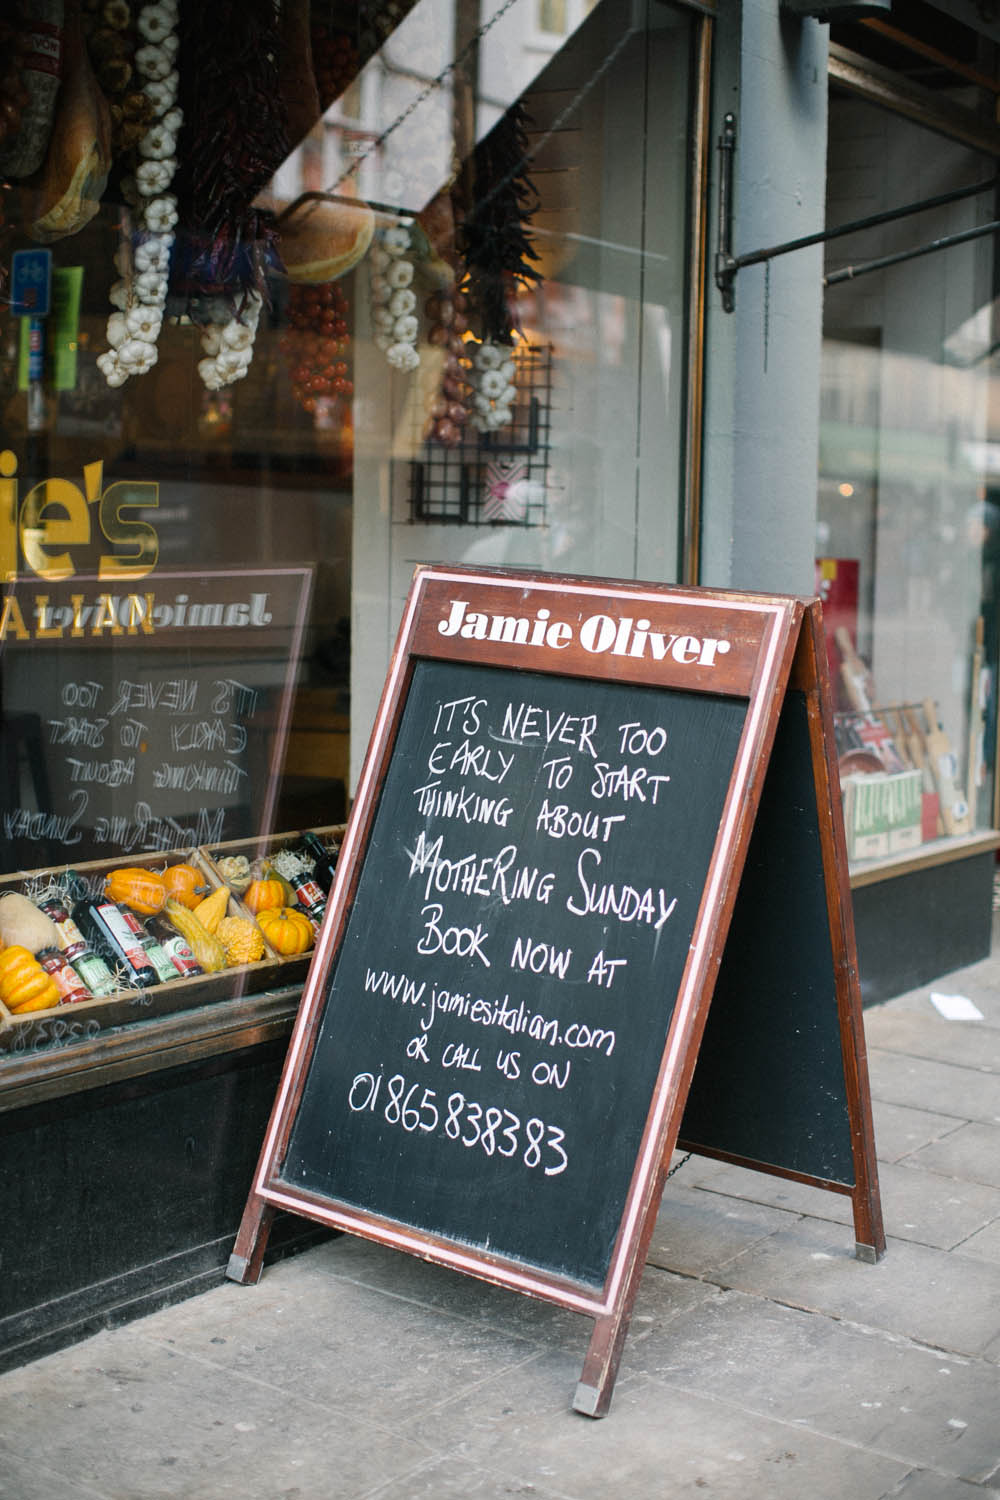 ie's
ALIAN
Jamie Oliver
IT'S NEVER TOO
EARLY TO START
THINKING ABOUT
MOTHERING SUNDAY
BOOK NOW AT
www.jamiesitalian.com
OR CALL US ON
01865838383